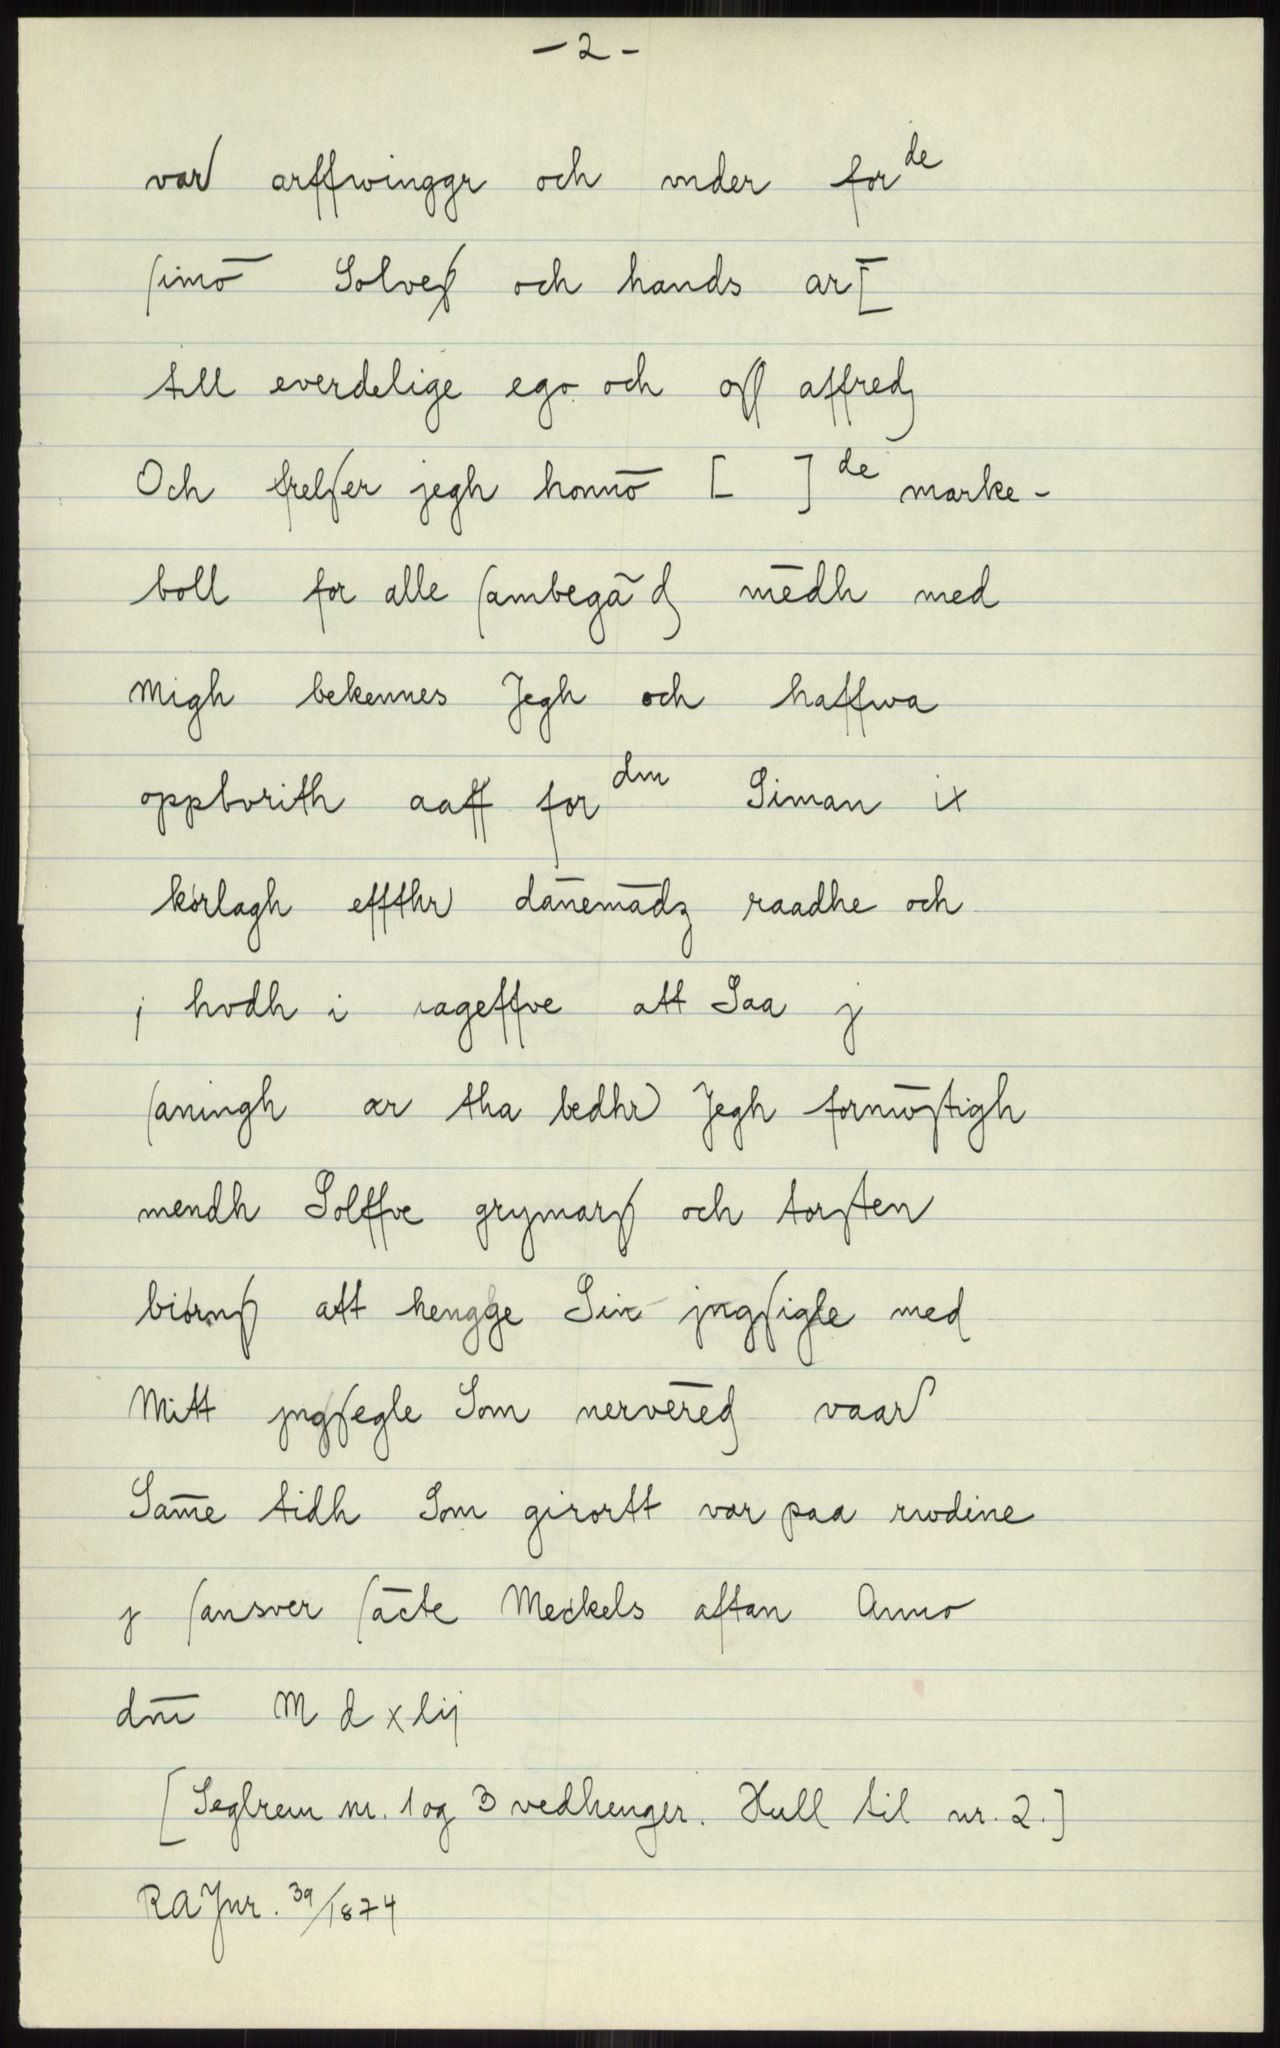 - 2 -
var arffwinggr och vnder for de
simō Solveß och hands ar[
till everdelige ego och off affredz
Och frelser jegh honnō [ ] de marke-
boll for alle sambegā dz mēdh med
Migh bekennes Jegh och haffwa
oppborith aaff for dm Siman ix
kørlagh effthr dānemādz raadhe och
j hvdh i rageffve att Saa j
saningh ær tha bedhr Jegh fornwstigh
mendh Solffve grymarß och torsten
biørnß att hengge Sin jngsigle med
Mitt jngsegle Som nervēredz vaar
Sam̄e tidh Som girortt var paa rwdine
j sansver sācte Meckels aftan Anno
dn̄i M d xlij
[Seglrem nr. 1 og 3 vedhenger. Hull til nr. 2.]
RA Jnr. 39/1874